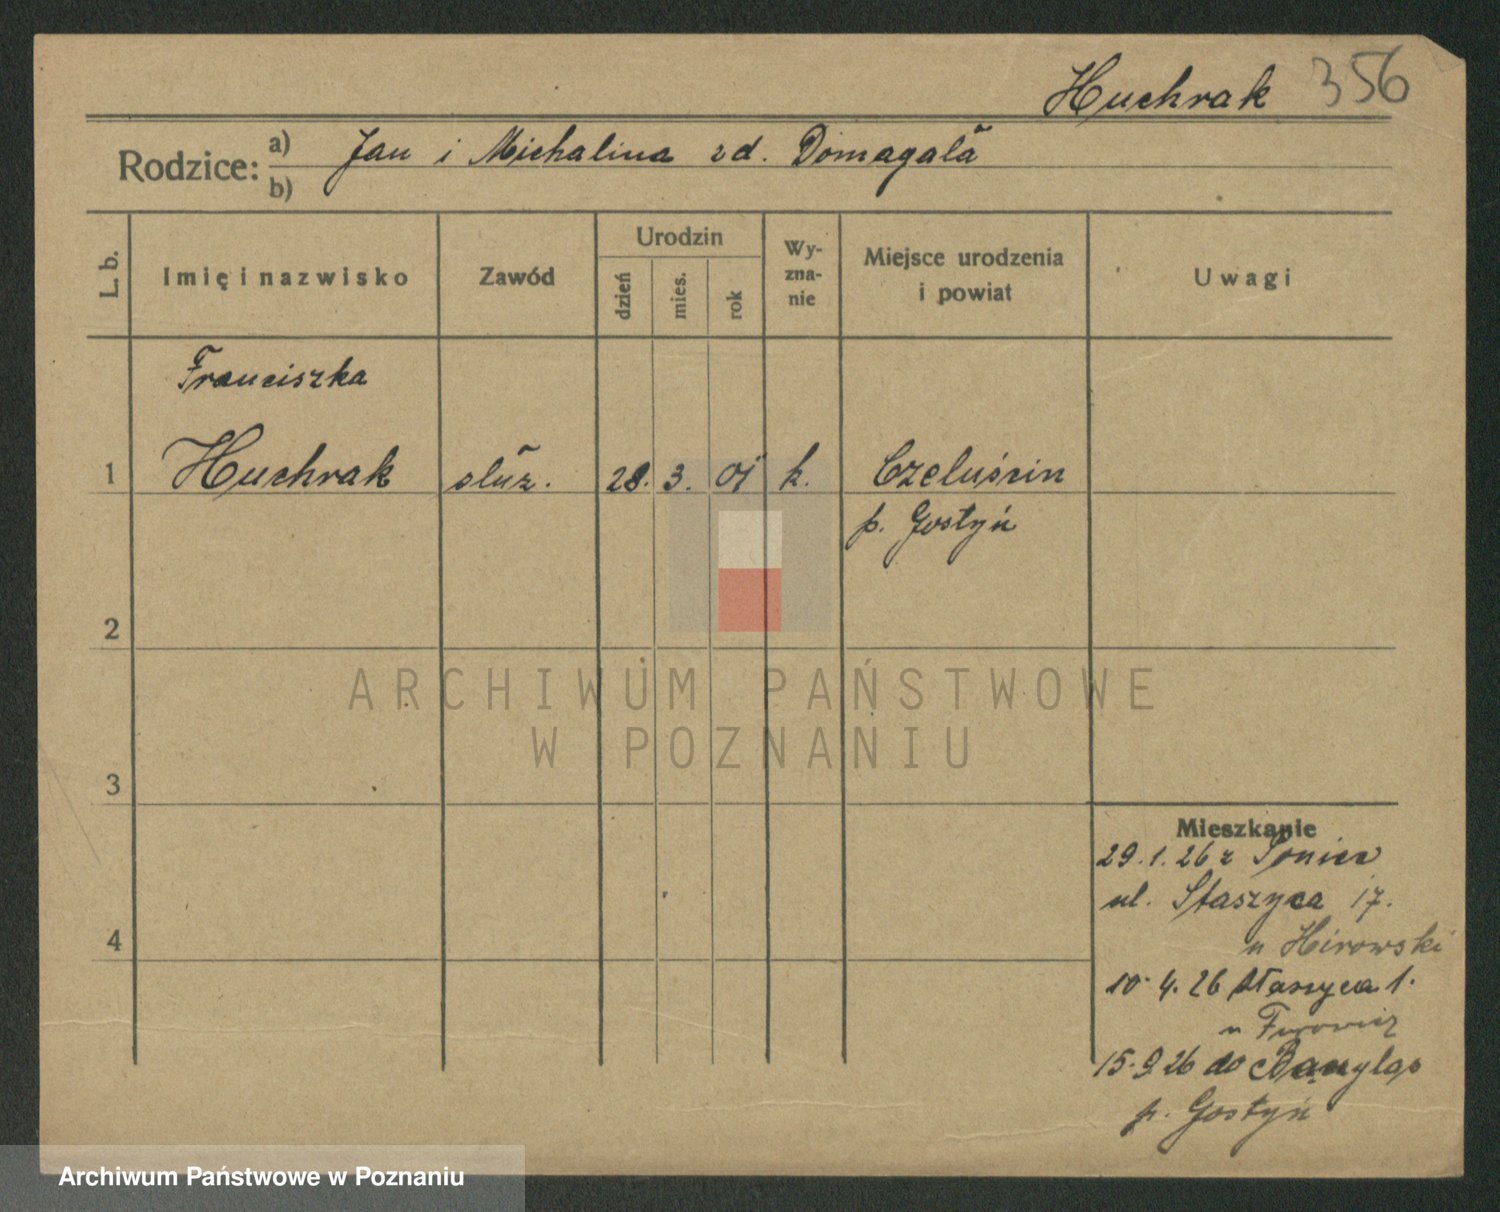 Huchrak 356
Rodzice: a) Jan i Michalina zd. Domagała
b)
L. b.
Imię i nazwisko
Zawód
Urodzin
dzień
mies.
rok
Wy-
zna-
nie
Miejsce urodzenia
i powiat
Uwagi
Franciszka
1 Huchrak służ. 28. 3. 01 k. Czeluścin
p. Gostyń
2
ARCHIWUM PAŃSTWOWE
W POZNANIU
3
Mieszkanie
29.1.26 z
ul. Staszyca 17.
u Hirowski
4
10.4.26 Staszyca 1.
u
15.9.26 do
p. Gostyń
Archiwum Państwowe w Poznaniu